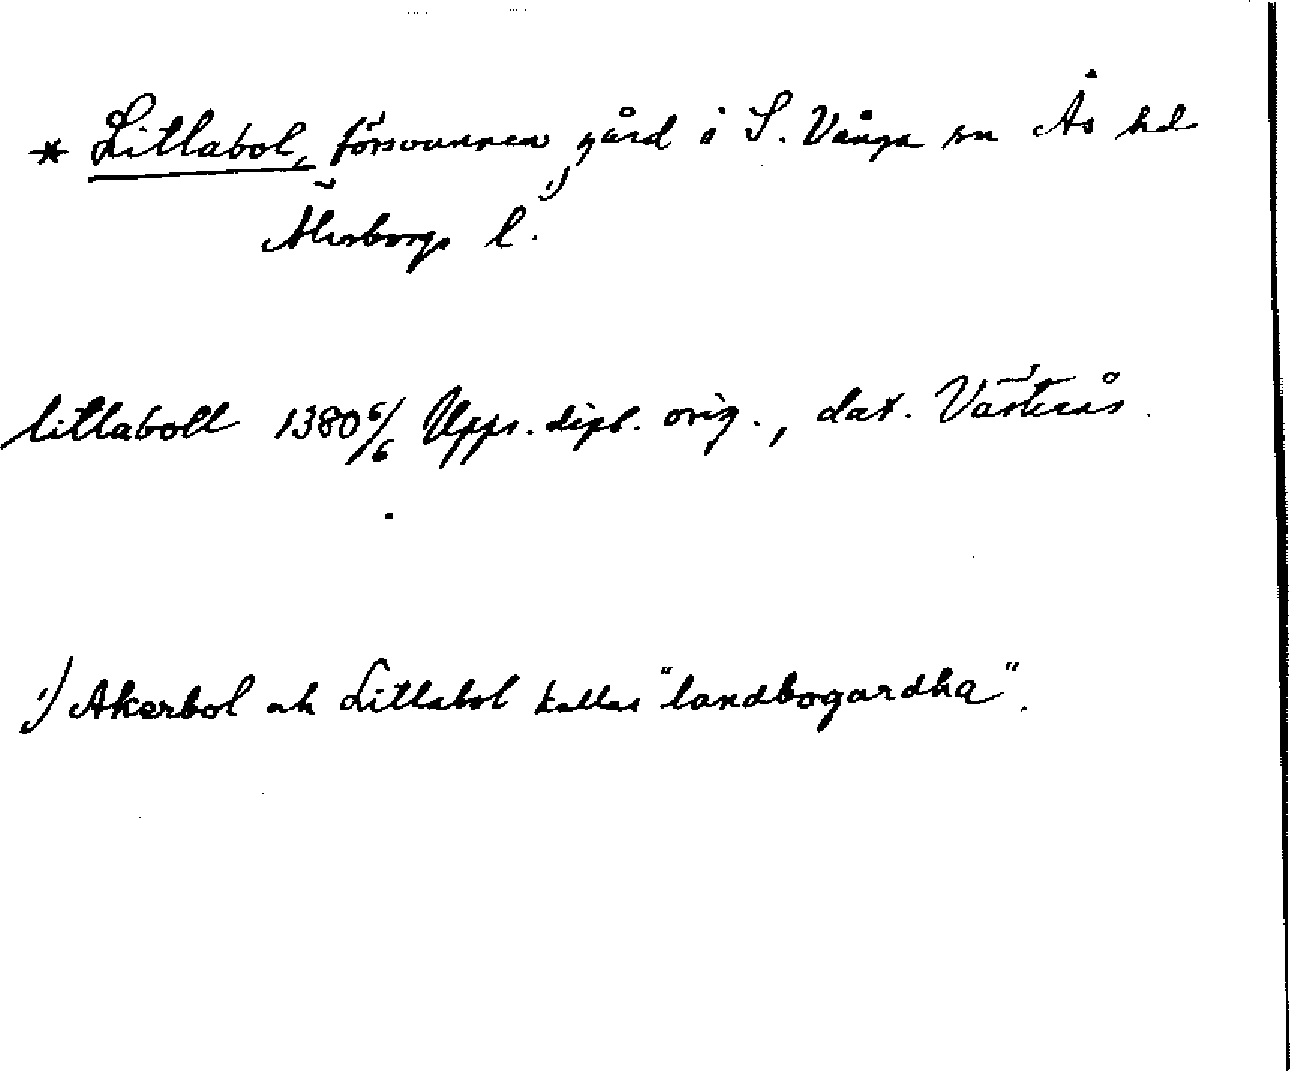 * Litlabol, försvunnen gård i S. Vånga sn Ås hd
Älvsborgs l. 1)
litlaboll 1380 6/6 Upps. dipl. orig., dat. Västerås.
1) Akerbol och Litlabol kallas "landbogardha".